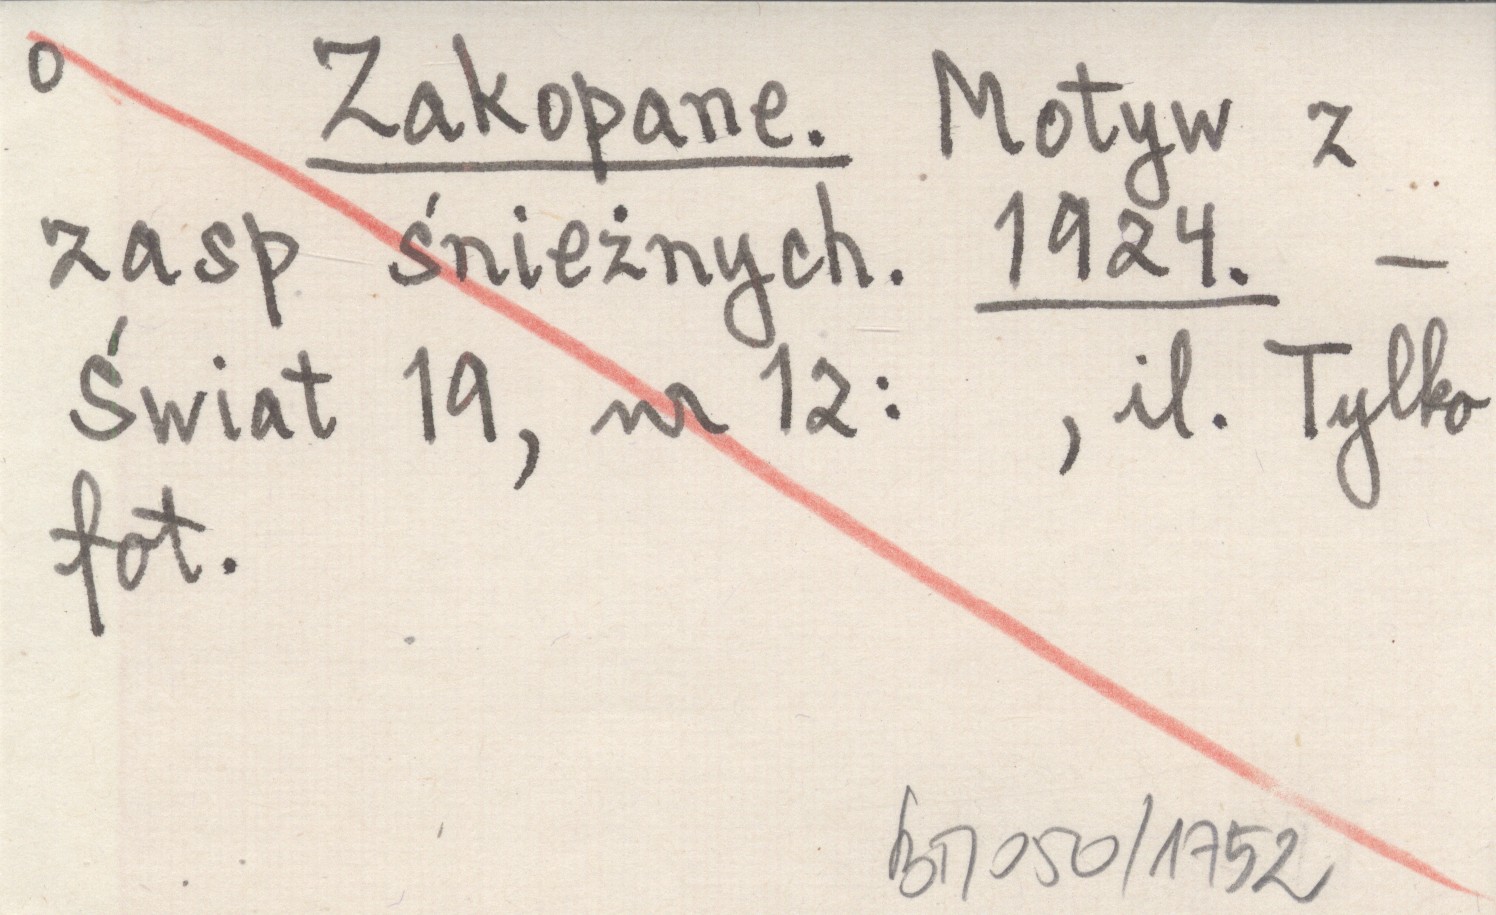 o Zakopane. Motyw z
zasp śnieżnych. 1924. –
Świat 19, nr 12: , il. Tylko
fot.
050/1752